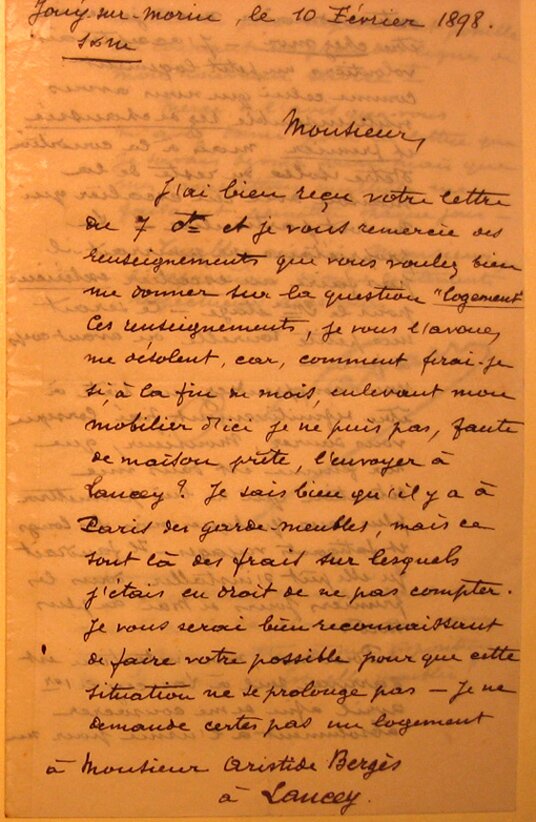 Jouy-sur-Morin, le 10 Février 1898.
S&M
Monsieur,
J'ai bien reçu votre lettre
du 7 ct et je vous remercie des
renseignements que vous voulez bien
me donner sur la question "logement"
Ces renseignements, je vous l'avoue,
me désolent, car, comment ferai-je
si, à la fin du mois, enlevant mon
mobilier d'ici je ne puis pas, faute
de maison prête, l'envoyer à
Lancey? Je sais bien qu'il y a à
Paris des garde-meubles, mais ce
sont là des frais sur lesquels
j'étais en droit de ne pas compter.
Je vous serai bien reconnaissant
de faire votre possible pour que cette
situation ne se prolonge pas — Je ne
demande certes pas un logement
à Monsieur Aristide Bergès
à Lancey.